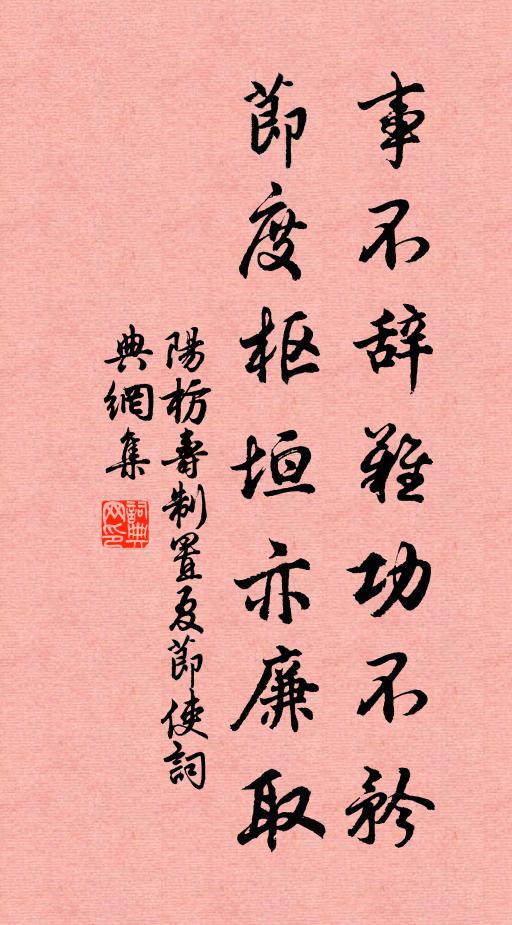 事不辞難功不矜
節度枢垣亦廉取
陽枋壽制置夏節使詞
典網集
詞典網印